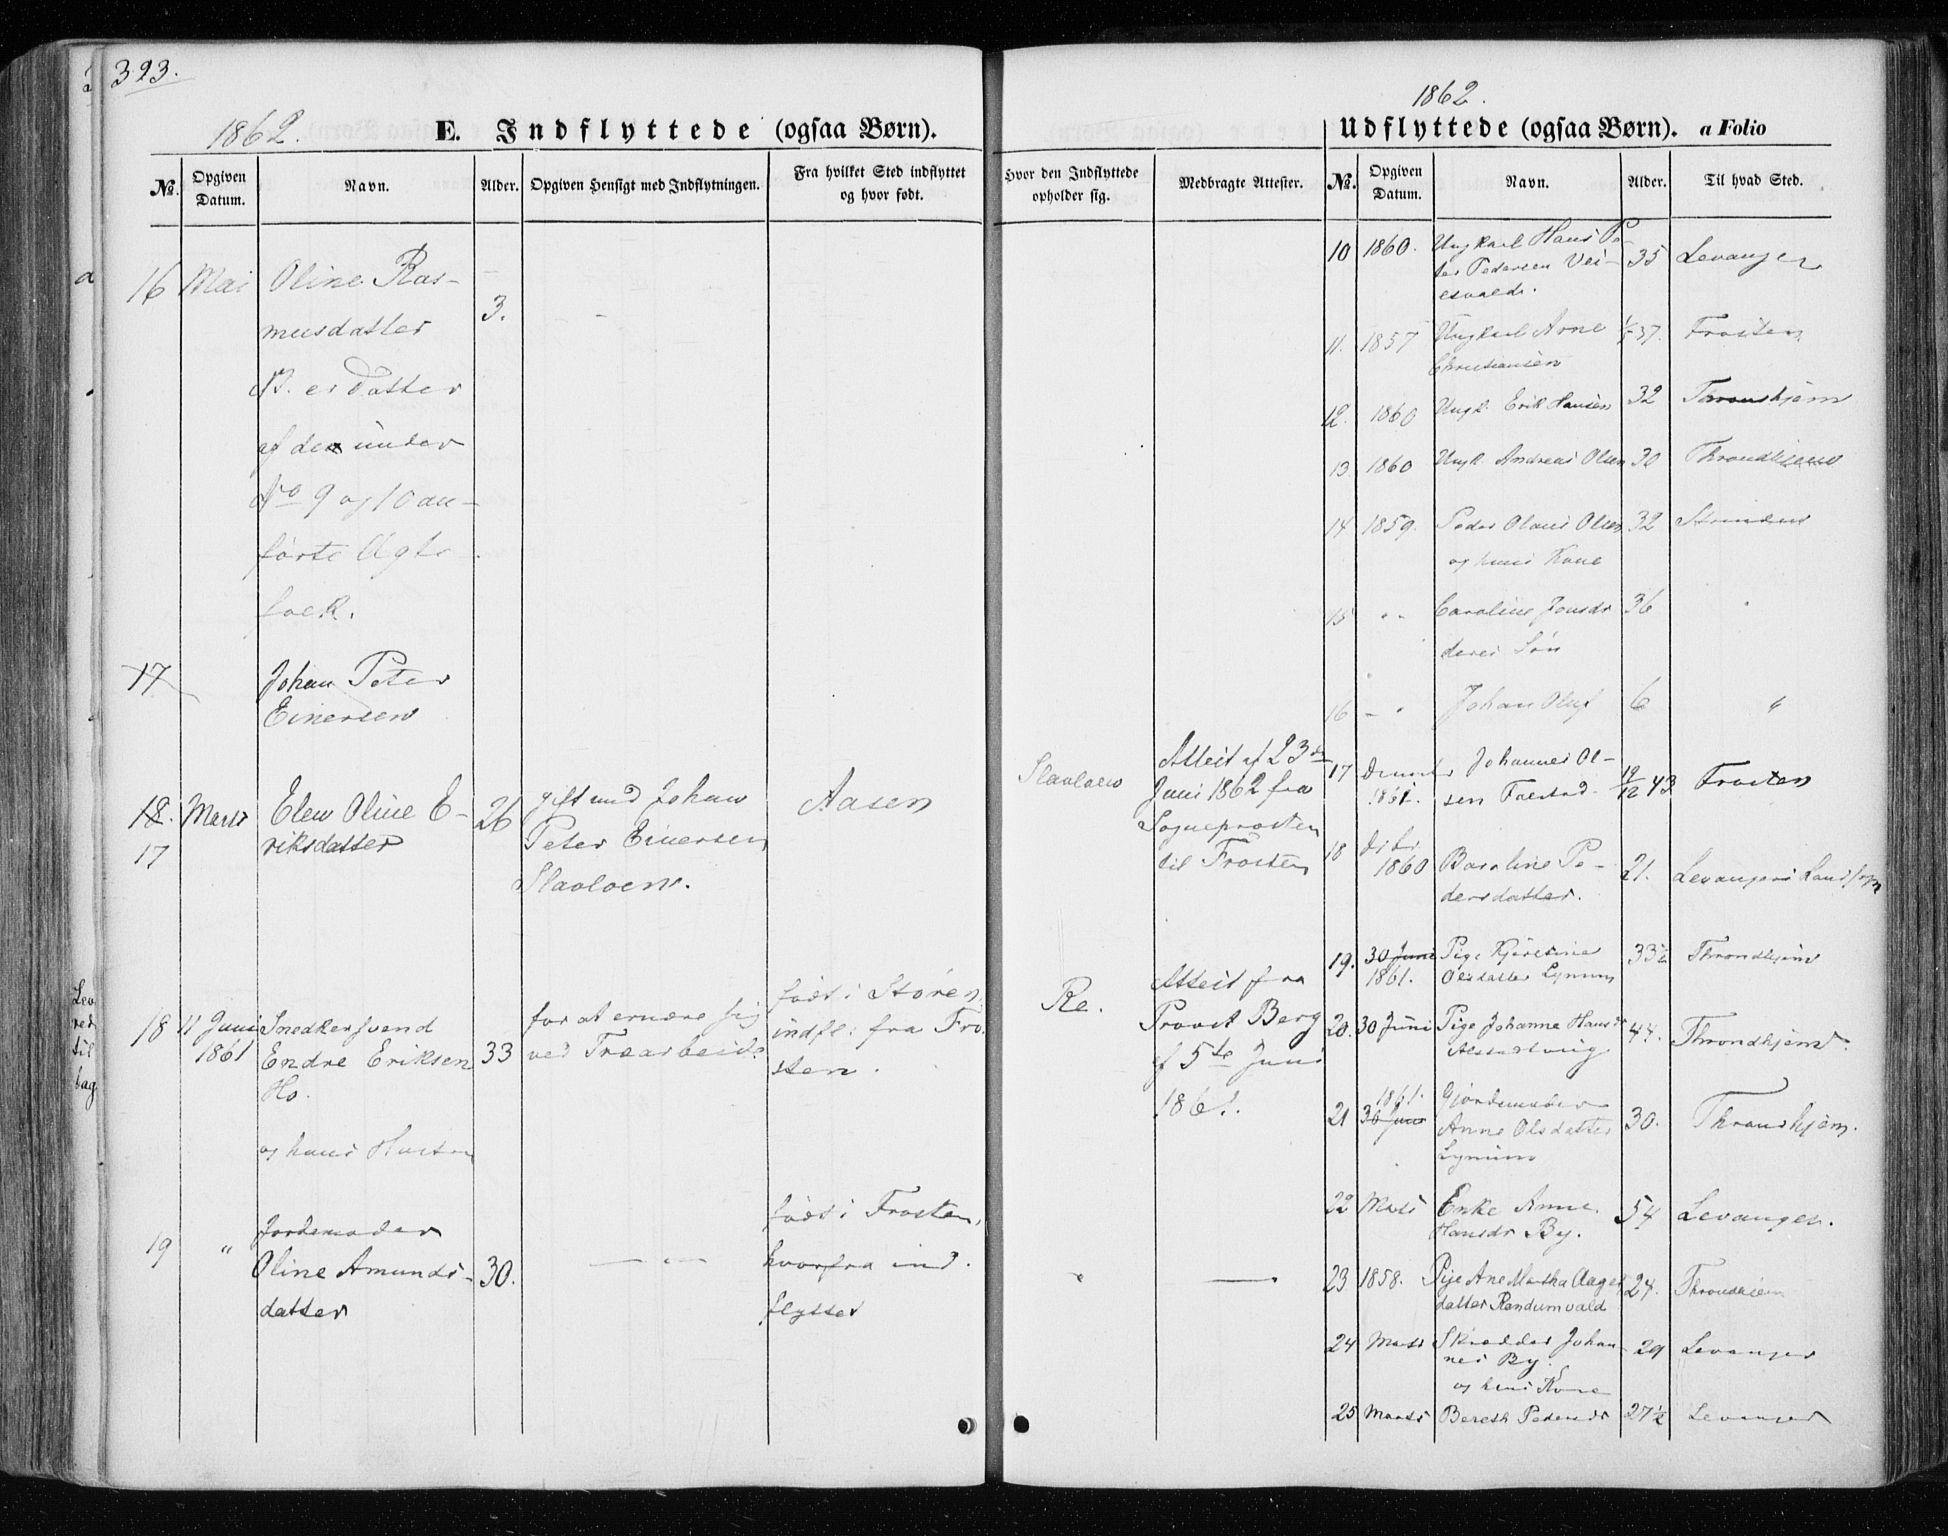 323.
1862.
E. Indflyttede (ogsaa Børn).
No. Opgiven Datum. Navn. Alder. Opgiven Hensigt med Indflytningen. Fra hvilket Sted indflyttet og hvor født. Hvor den Indflyttede opholder sig. Medbragte Attester.
16 Mai Oline Ras-
musdatter 3.
NB. er Datter
af de under
No 9 og 10 an-
førte Ægte-
folk.
17 Johan Peter
Einersen
18. Marts Elen Oline E- 26 gift med Johan Aasen Attest af 23de
17 riksdatter Peter Einersen Juni 1862 fra
Sogneprosten
til Frosten
18 11 Juni Snedkersvend for at ernære sig født i Støren, Re. Attest fra
1861 Endre Eriksen 33 ved Træarbeide indfl: fra Fro- Provst Berg
Ho. sten. af 5te Juni
og hans Hustru 1861.
19 " Jordemoder født i Frosten,
Oline Amunds- 30. hvorfra ind-
datter flyttet
1862.
Udflyttede (ogsaa Børn). a Folio
No. Opgiven Datum. Navn. Alder. Til hvad Sted.
10 1860. Ungkarl Hans Pe- 35 Levanger
ter Pedersen
11. 1857 Ungkarl Arne 37. Frosten
Christiansen
12. 1860 Ungk. Erik Hansen 32 Throndhjem
13. 1860 Ungk. Andreas Olsen 30 Throndhjem
14 1859. Peder Olaus Olsen 32 Strinden
og hans Kone
15 " " Caroline Jonsdr 36 "
deres Søn
16 - " Johan Oluf 6 "
17 Johannes Ol- 19/12 43 Frosten
1861. sen Falstad
18 1860 Baroline Pe- 21. Levangers Landsogn
dersdatter.
19. 30 Juni Pige Kjerstine 33½ Throndhjem
1861. Olsdatter Lynum
20. 30 Juni Pige Johanne Hansdr 44. Throndhjem.
1861. Gjordemoder
21 30 Juni Anne Olsdatter 30. Throndhjem.
Lynum
22 Marts Enke Anne 54 Levanger.
Hansdr By.
23 1858. Pige Ane Martha Aages 24. Throndhjem
datter Randumvald
24 Marts Skrædder Johan- 29 Levanger
nes By.
og hans Kone
25 Marts Bereth Pedersdr 27½ Levanger